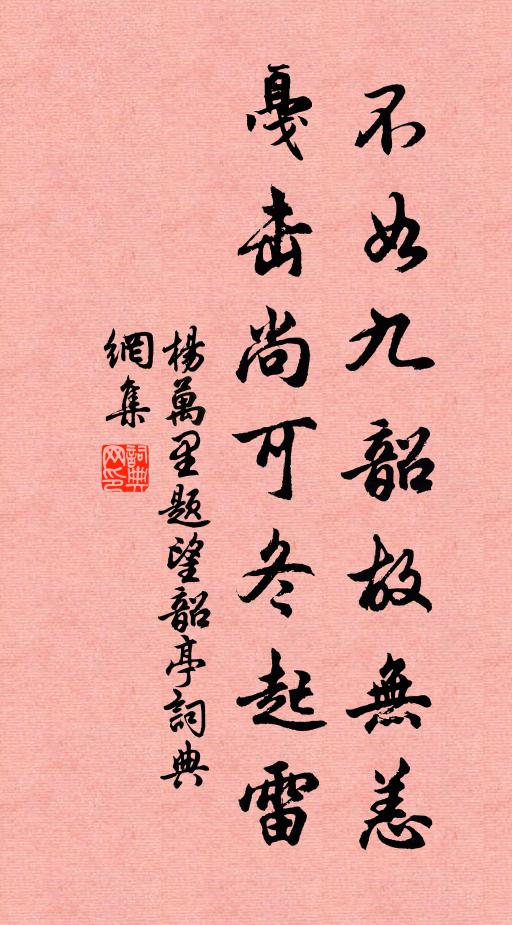 不如九韶故無恙
戛击尚可冬起雷
楊萬里题望韶亭詞典
網集
詞典
网印